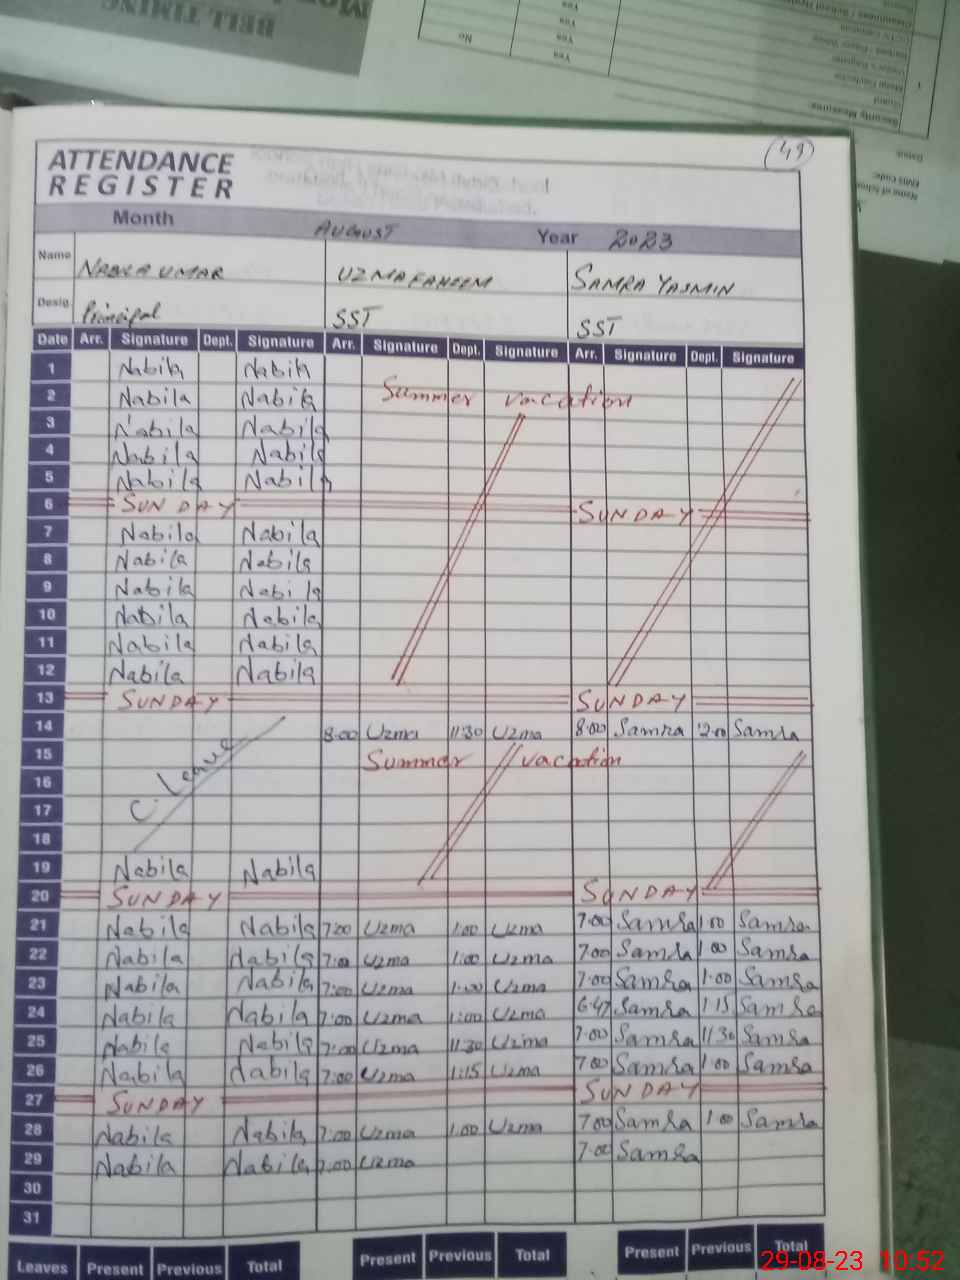 BELL TIMING
No
Yes
Yes
Yes
Yes
Security Measures:
Guard
1
(49)
ATTENDANCE
REGISTER
Month AUGUST Year 2023
Name NABILA UMAR UZMA FAHEEM SAMRA YASMIN
Desig. Principal SST SST
Date Arr. Signature Dept. Signature Arr. Signature Dept. Signature Arr. Signature Dept. Signature
1 Nabila Nabila
2 Nabila Nabila Summer vacation
3 Nabila Nabila
4 Nabila Nabila
5 Nabila Nabila
6 SUNDAY SUNDAY
7 Nabila Nabila
8 Nabila Nabila
9 Nabila Nabila
10 Nabila Nabila
11 Nabila Nabila
12 Nabila Nabila
13 SUNDAY SUNDAY
14 8:00 Uzma 11:30 Uzma 8:00 Samra 12:00 Samra
15 C. Leave Summer vacation
16
17
18
19 Nabila Nabila
20 SUNDAY SUNDAY
21 Nabila Nabila 7:00 Uzma 1:00 Uzma 7:00 Samra 1:00 Samra
22 Nabila Nabila 7:00 Uzma 1:00 Uzma 7:00 Samra 1:00 Samra
23 Nabila Nabila 7:00 Uzma 1:00 Uzma 7:00 Samra 1:00 Samra
24 Nabila Nabila 7:00 Uzma 1:00 Uzma 6:47 Samra 1:15 Samra
25 Nabila Nabila 7:00 Uzma 11:30 Uzma 7:00 Samra 11:30 Samra
26 Nabila Nabila 7:00 Uzma 1:15 Uzma 7:00 Samra 1:00 Samra
27 SUNDAY SUNDAY
28 Nabila Nabila 7:00 Uzma 1:00 Uzma 7:00 Samra 1:00 Samra
29 Nabila Nabila 7:00 Uzma 7:00 Samra
30
31
Leaves Present Previous Total Present Previous Total Present Previous Total
29-08-23 10:52